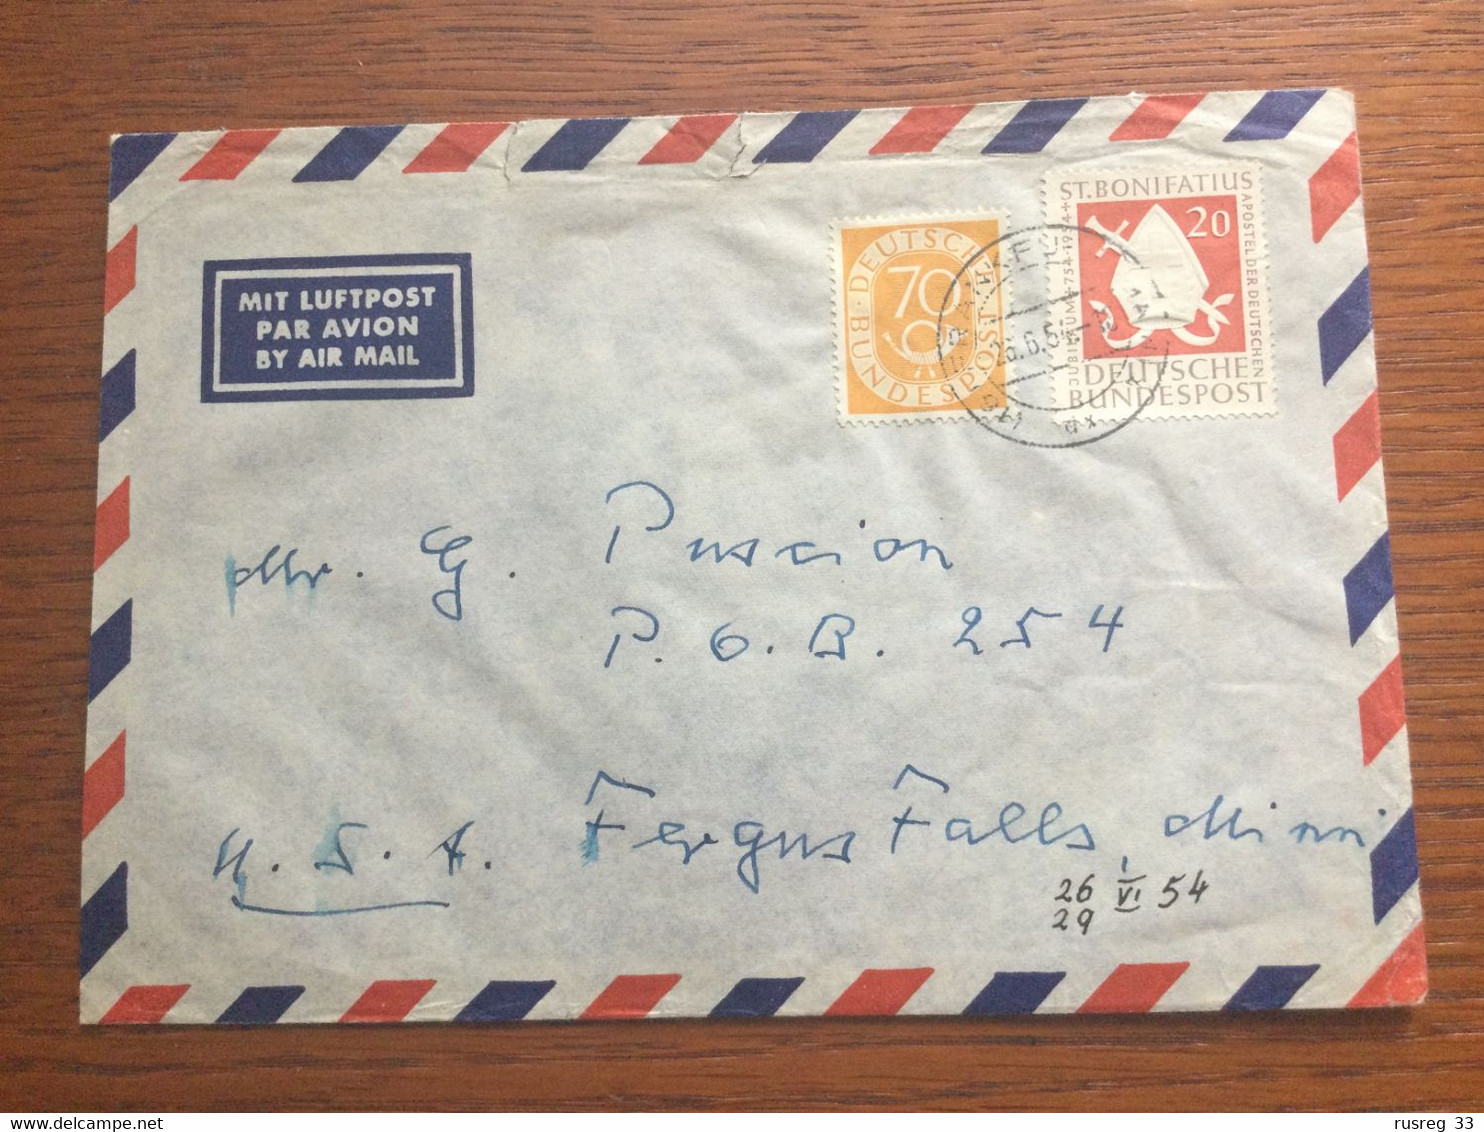 MIT LUFTPOST
PAR AVION
BY AIR MAIL
DEUTSCHE BUNDESPOST
70
ST. BONIFATIUS
20
APOSTEL DER DEUTSCHEN
JUBILÄUM + 754 · 1954 +
DEUTSCHE
BUNDESPOST
26.6.54
Mr. G. Puscion
P.O.B. 254
U.S.A. Fergus Falls, Minn
26 VI 54
29
rusreg 33